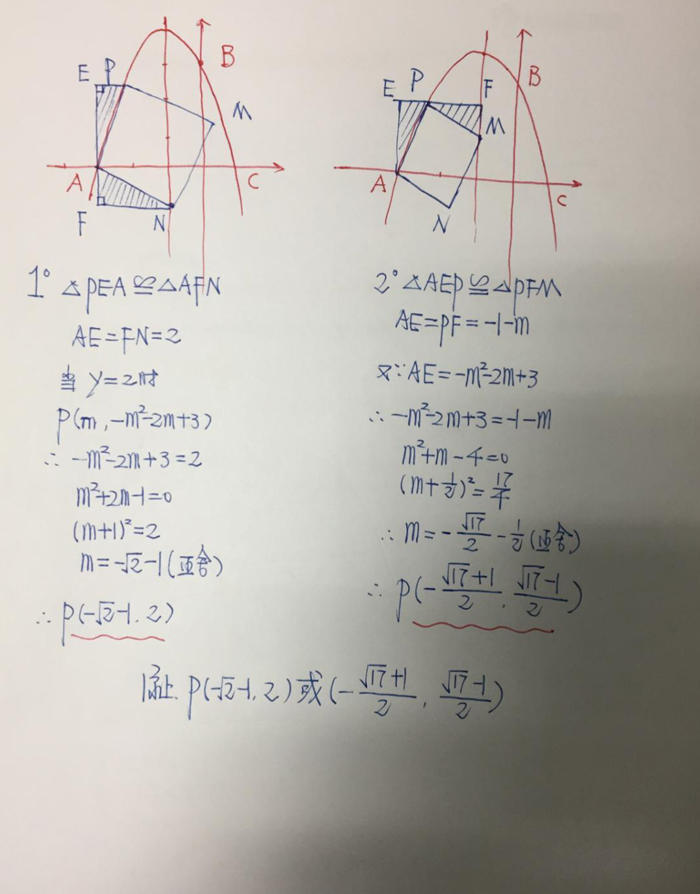 E P B M A C F N
E P F B M A N C
1° △PEA≌△AFN
AE=FN=2
当 y=2时
P(m, -m²-2m+3)
∴ -m²-2m+3=2
m²+2m-1=0
(m+1)²=2
m=-√2-1(正舍)
∴ P(-√2-1, 2)
2° △AEP≌△PFM
AE=PF=-1-m
又∵AE=-m²-2m+3
∴ -m²-2m+3=-1-m
m²+m-4=0
(m+1/2)²=17/4
∴ m=-√17/2-1/2(正舍)
∴ P(-(√17+1)/2, (√17-1)/2)
综上 P(-√2-1, 2)或(-(√17+1)/2, (√17-1)/2)